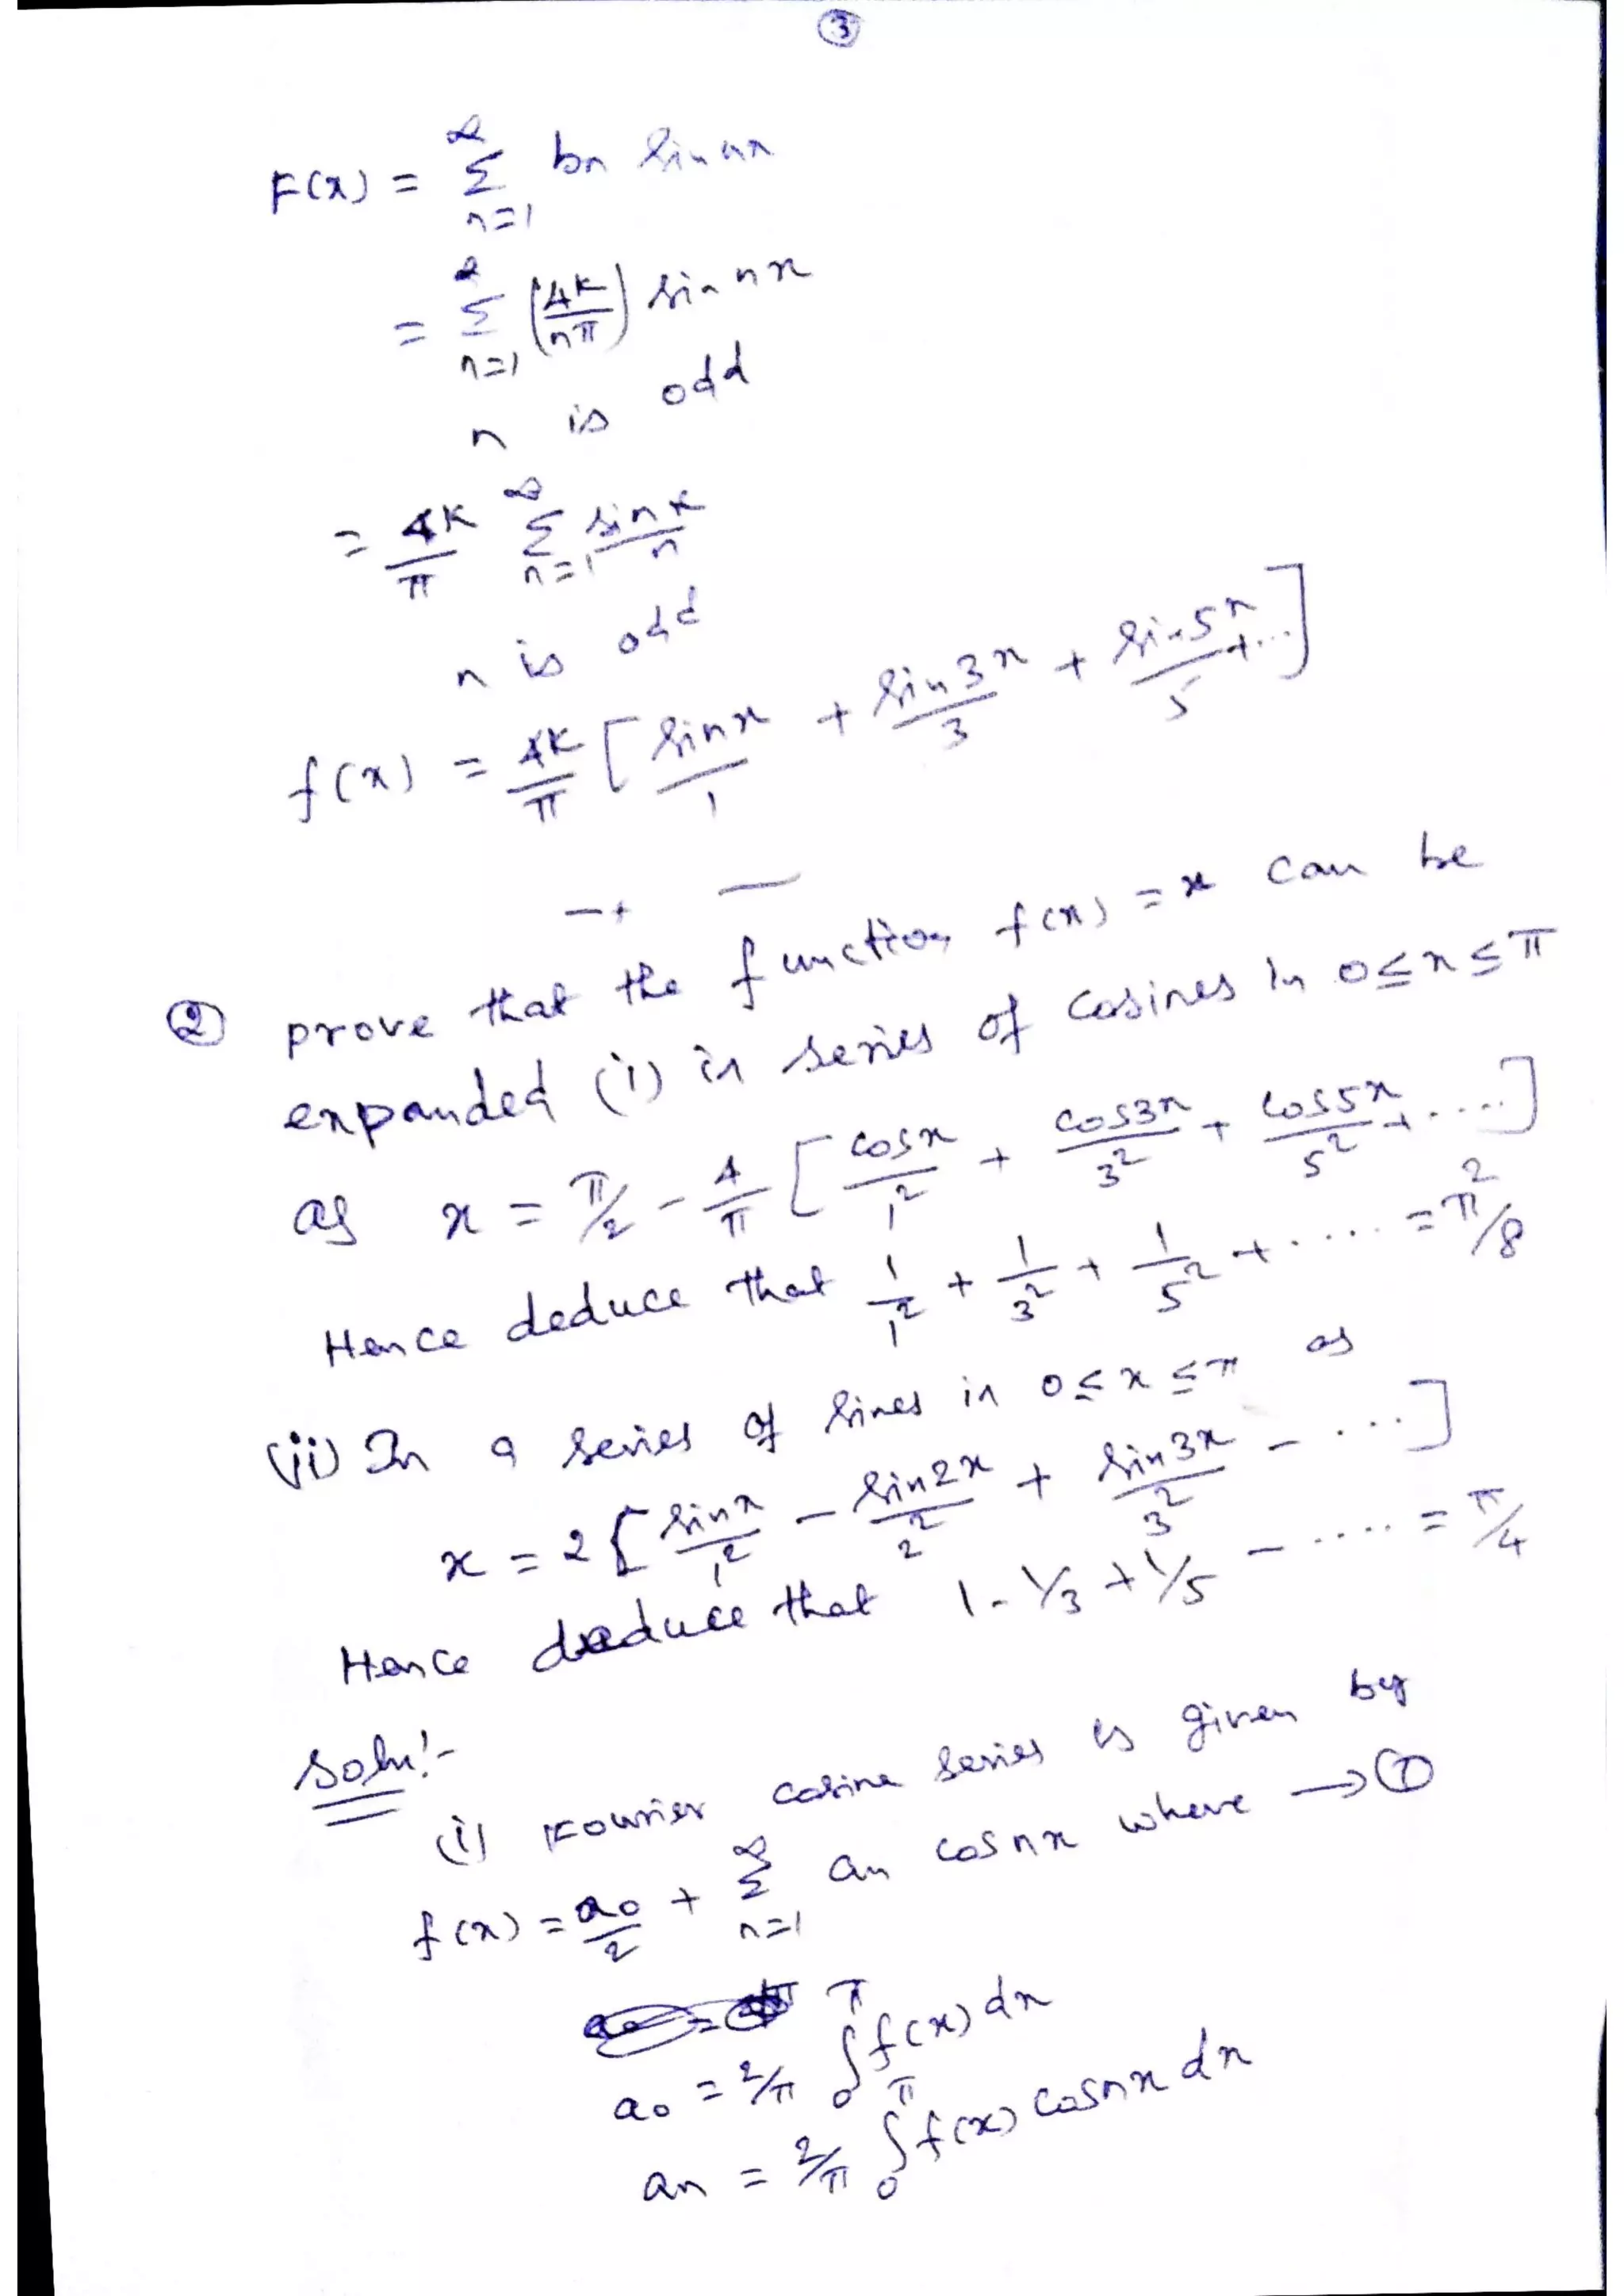 ③
F(x) = ∞ Σ n=1 bn sin nx
= ∞ Σ n=1 (4k/nπ) sin nx
n is odd
= 4k/π ∞ Σ n=1 sin x/n
n is odd
f(x) = 4k/π [ sin x/1 + sin 3x/3 + sin 5x/5 + ... ]
② prove that the function f(x) = x can be
expanded (i) in series of cosines in 0 ≤ x ≤ π
as x = π/2 - 4/π [ cos x/1² + cos 3x/3² + cos 5x/5² + .... ]
Hence deduce that 1/1² + 1/3² + 1/5² + .... = π²/8
(ii) In a series of sines in 0 ≤ x ≤ π as
x = 2 [ sin x/1² - sin 2x/2² + sin 3x/3² - ... ]
Hence deduce that 1 - 1/3 + 1/5 - .... = π/4
Soln:-
(i) Fourier cosine series is given by
f(x) = a0/2 + ∞ Σ n=1 an cos nx where → ①
a0 = 2/π ∫0π f(x) dx
an = 2/π ∫0π f(x) cos nx dx